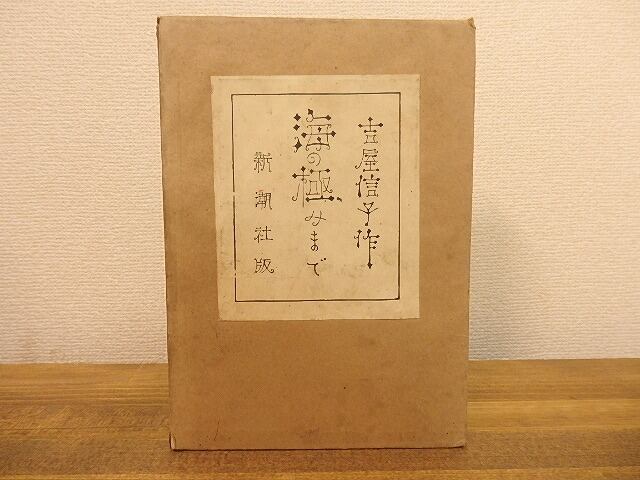 吉屋信子作
海の極みまで
新潮社版